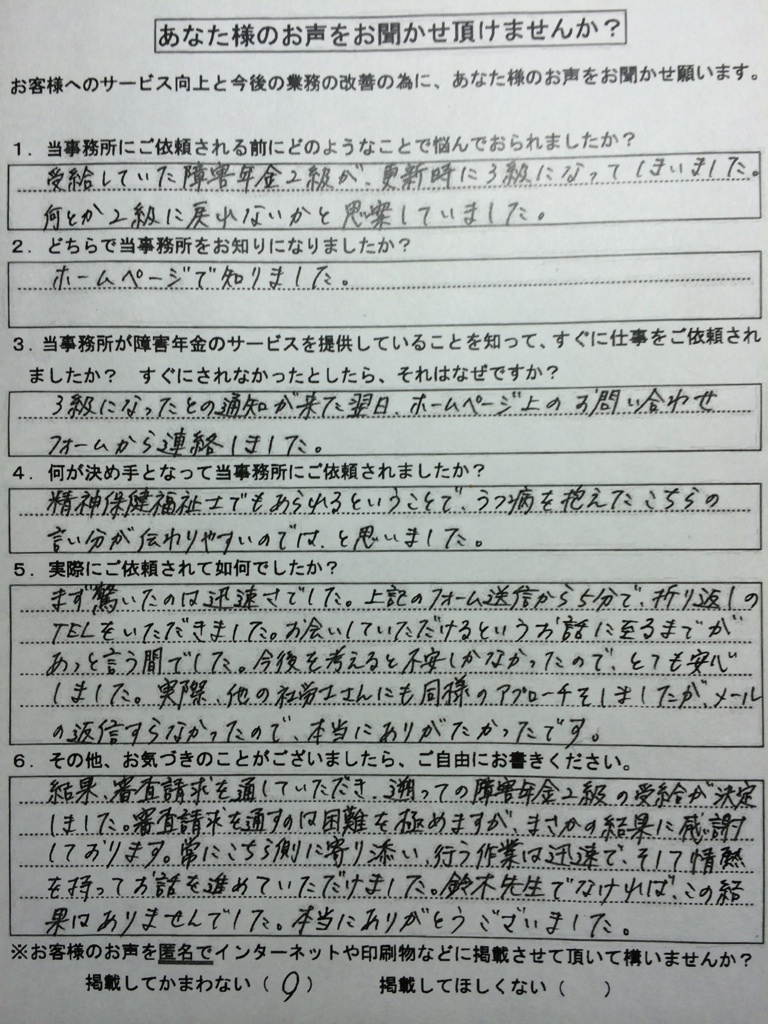 あなた様のお声をお聞かせ頂けませんか？
お客様へのサービス向上と今後の業務の改善の為に、あなた様のお声をお聞かせ願います。
１．当事務所にご依頼される前にどのようなことで悩んでおられましたか？
受給していた障害年金2級が、更新時に3級になってしまいました。
何とか2級に戻れないかと思案していました。
２．どちらで当事務所をお知りになりましたか？
ホームページで知りました。
３．当事務所が障害年金のサービスを提供していることを知って、すぐに仕事をご依頼され
ましたか？　すぐにされなかったとしたら、それはなぜですか？
3級になったとの通知が来た翌日、ホームページ上のお問い合わせ
フォームから連絡しました。
４．何が決め手となって当事務所にご依頼されましたか？
精神保健福祉士でもあられるということで、うつ病を抱えたこちらの
言い分が伝わりやすいのでは、と思いました。
５．実際にご依頼されて如何でしたか？
まず驚いたのは迅速さでした。上記のフォーム送信から5分で、折り返しの
TELをいただきました。お会いしていただけるというお話に至るまでが
あっと言う間でした。今後を考えると不安しかなかったので、とても安心
しました。実際、他の社労士さんにも同様のアプローチをしましたが、メール
の返信すらなかったので、本当にありがたかったです。
６．その他、お気づきのことがございましたら、ご自由にお書きください。
結果、審査請求を通していただき、遡っての障害年金2級の受給が決定
しました。審査請求を通すのは困難を極めますが、まさかの結果に感謝
しております。常にこちら側に寄り添い、行う作業は迅速で、そして情熱
を持ってお話を進めていただけました。鈴木先生でなければ、この結
果はありませんでした。本当にありがとうございました。
※お客様のお声を匿名でインターネットや印刷物などに掲載させて頂いて構いませんか？
掲載してかまわない（ ○ ）　掲載してほしくない（　）